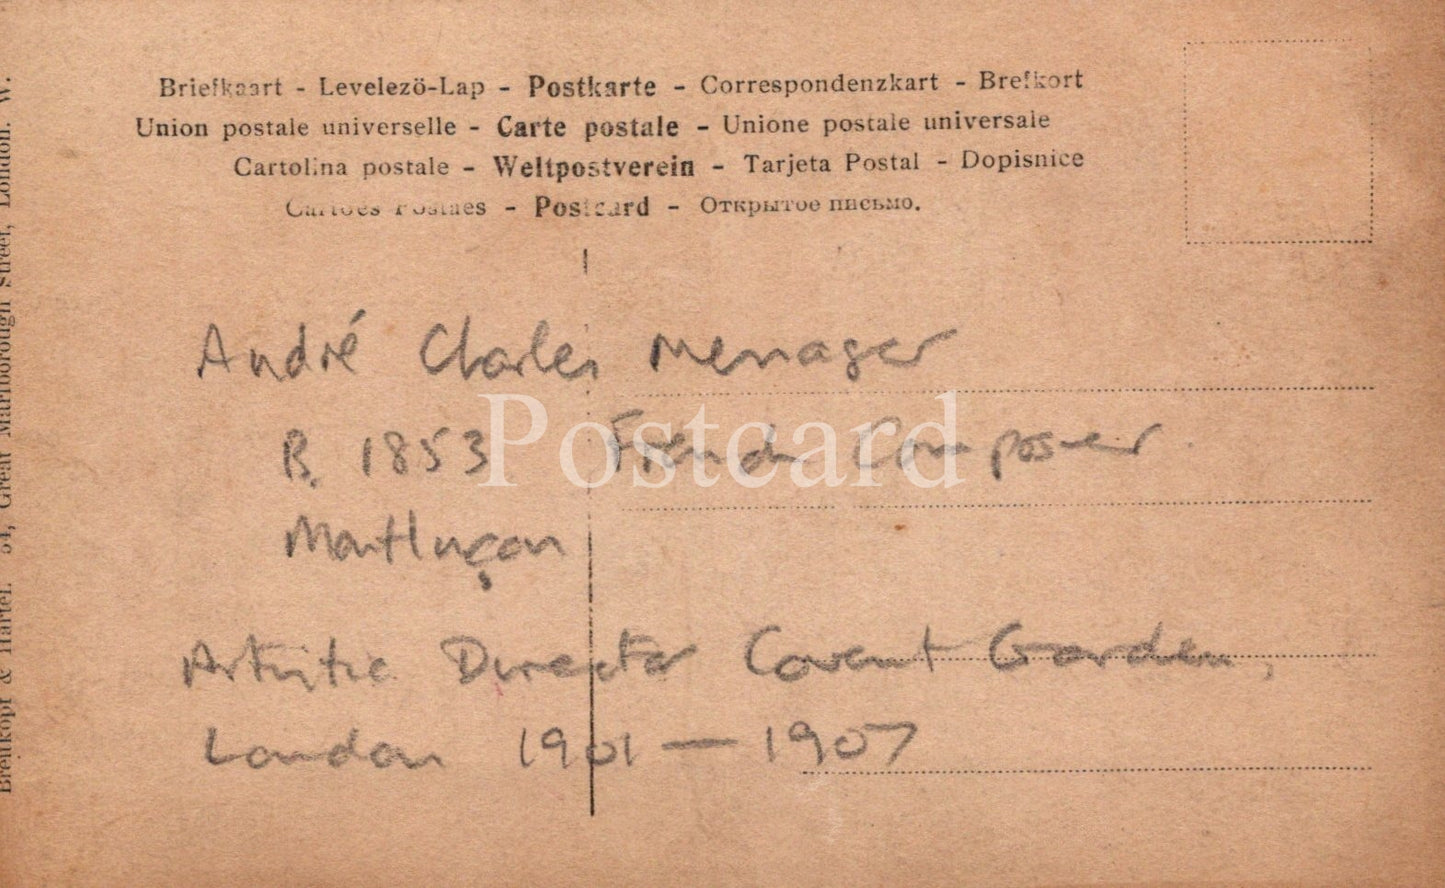 Briefkaart - Levelezö-Lap - Postkarte - Correspondenzkart - Brefkort
Union postale universelle - Carte postale - Unione postale universale
Cartolina postale - Weltpostverein - Tarjeta Postal - Dopisnice
Cartões Postaes - Postcard - Открытое письмо.
André Charles Menager
B. 1853 French Composer
Montluçon
Artistic Director Covent Garden,
London 1901 — 1907
Postcard
Breitkopf & Härtel. 54, Great Marlborough Street, London. W.